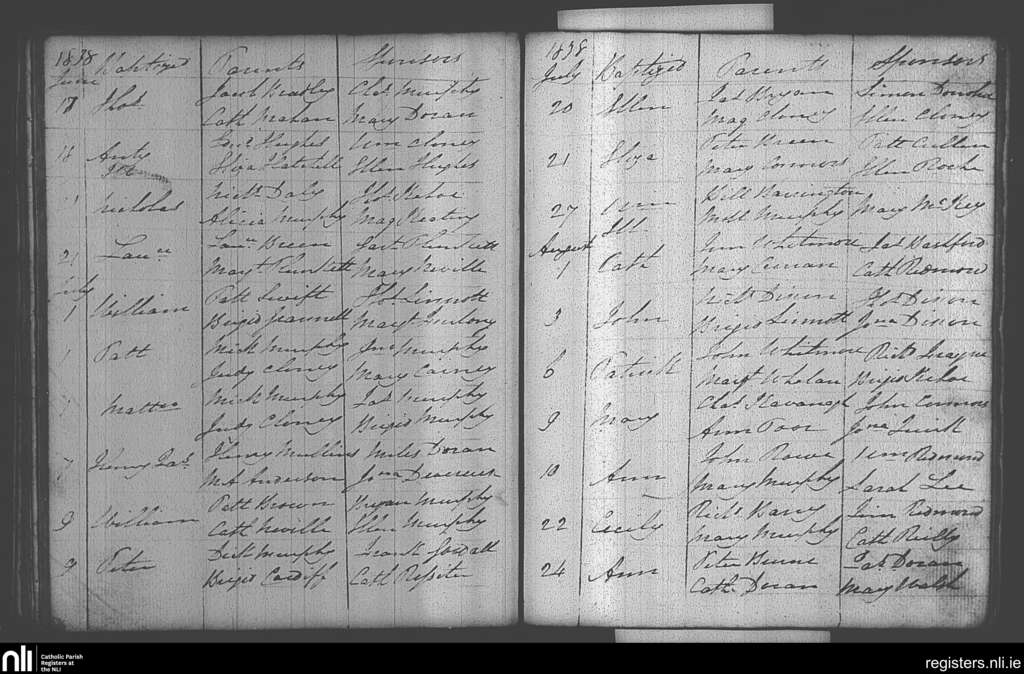 1838
June Baptized Parents Sponsors
17 Thos Jacob Keatley Chas Murphy
Cath Mahan Mary Doran
18 Anty Hughes Wm Cloney
Ill Eliza Hatchell Ellen Hughes
Nicholas Nichs Daly Thos Kehoe
Alicia Murphy Mag Keating
21 Laur Laur Breen Jas Plunkett
Margt Plunkett Mary Neville
July
1 William Patt Swift Thos Sinnott
Bridgt Margt Furlong
1 Patt Mick Murphy Jno Murphy
Judy Cloney Mary Carney
7 Matter Mick Murphy Jas Murphy
Judy Cloney Bridgt Murphy
7 Henry Jas Henry Mullins Miles Doran
M A Anderson Jona Devereux
9 William Patt Brown Bryan Murphy
Cath Neville Ellen Murphy
9 Peter Dick Murphy Frank
Bridgt Cardiff Cath Rossiter
1838
July Baptized Parents Sponsors
20 Ellen Jas Bryan Simon Donohoe
Mag Cloney Ellen Cloney
21 Eliza Peter Breen Patt Cullen
Mary Connors Ellen Roche
27 Wm Bill Barrington
Ill Moll Murphy Mary McKey
August Jim Whitmore Jas Wastford
1 Cath Mary Cath Redmond
3 John Nichs Dixon Thos Dixon
Bridgt Sinnott Jona Dixon
6 Patrick John Whitmore Richd Frayne
Margt Whelan Bridgt Kehoe
9 Mary Chas Kavanagh John Connors
Ann Poor Jona Quirk
10 Ann John Rowe Wm Redmond
Mary Murphy Sarah Lee
22 Cecily Richd Barry Jim Redmond
Mary Murphy Cath Reilly
24 Ann Peter Jas Doran
Cath Doran Mary Walsh
nli Catholic Parish
Registers at
the NLI
registers.nli.ie